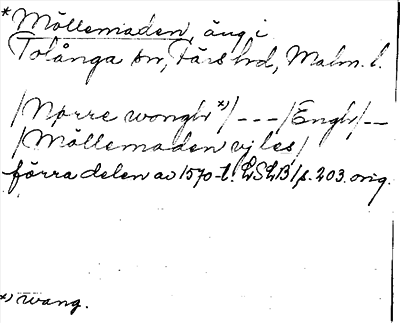 *Möllemaden, äng i
Tolånga sn, Färs hd, Malm. l.
/Nørre wongbr *)/ - - - /Engbr/ - -
/Möllemaden vj les/
förra delen av 1570-t. LSLB 1 s. 203. orig.
*) wang.